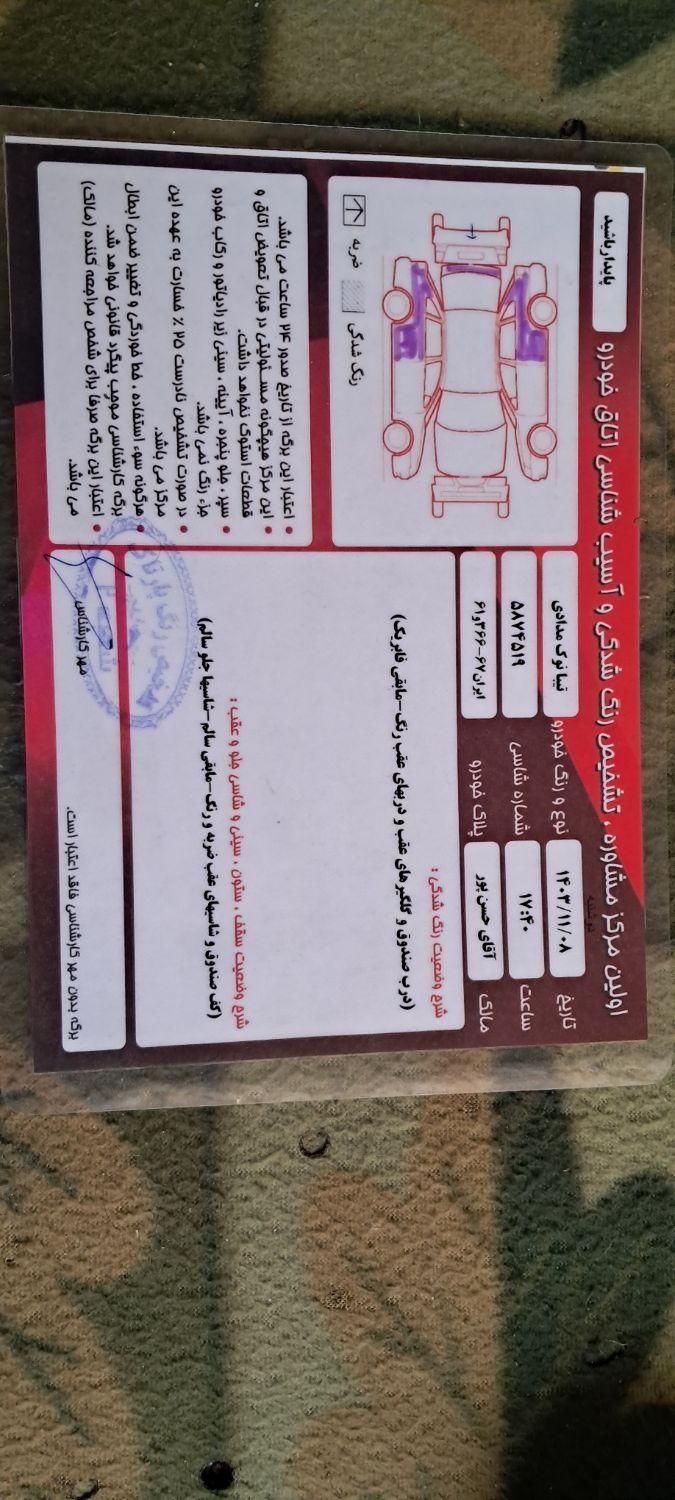 اولین مرکز مشاوره ، تشخیص رنگ شدگی و آسیب شناسی اتاق خودرو
پایدار باشید
دوشنبه
تاریخ ۱۴۰۳/۱۱/۰۸
نوع و رنگ خودرو تیبا نوک مدادی
ساعت ۱۷:۴۰
شماره شاسی ۵۸۷۴۵۱۹
مالک آقای حسن پور
پلاک خودرو ایران ۶۷-۳۶۶و۶۱
ضربه
رنگ شدگی
شرح وضعیت رنگ شدگی :
(درب صندوق و گلگیرهای عقب و دربهای عقب رنگ-مابقی فابریک)
شرح وضعیت سقف ، ستون ، سینی و شاسی جلو و عقب :
(کف صندوق و شاسیهای عقب ضربه و رنگ-مابقی سالم-شاسیها جلو سالم)
• اعتبار این برگه از تاریخ صدور ۲۴ ساعت می باشد.
• این مرکز هیچگونه مسئولیتی در قبال تعویض اتاق و
قطعات استوک نخواهد داشت.
• سپر ، جلو پنجره ، آیینه ، سینی زیر رادیاتور و رکاب خودرو
جزء رنگ نمی باشد.
• در صورت تشخیص نادرست ۲۵ ٪ خسارت به عهده این
مرکز می باشد.
• هرگونه سوء استفاده ، خط خوردگی و تغییر ضمن ابطال
برگه کارشناسی موجب پیگرد قانونی خواهد شد.
• اعتبار این برگه صرفا برای شخص مراجعه کننده (مالک)
می باشد.
مهر کارشناس
برگه بدون مهر کارشناسی فاقد اعتبار است.